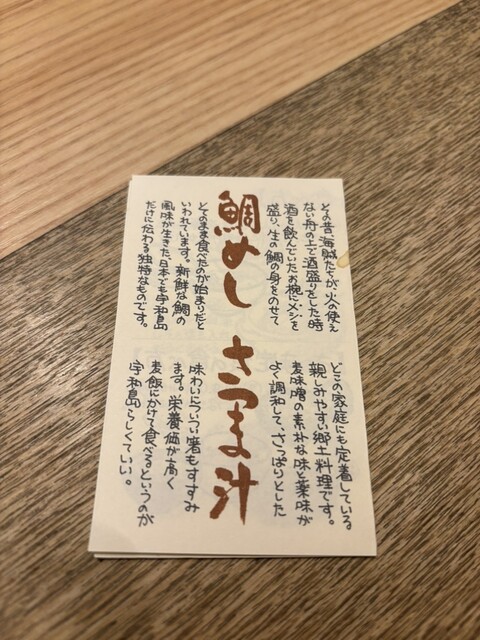 鯛めし
その昔海賊たちが、火の使え
ない舟の上で酒盛りをした時
酒を飲んでいたお椀にメシを
盛り、生の鯛の身をのせて
とそのまま食べたのが始まりだと
いわれています。新鮮な鯛の
風味が生きた、日本でも宇和島
だけに伝わる独特なものです。
さつま汁
どこの家庭にも定着している
親しみやすい郷土料理です。
麦味噌の素朴な味と薬味が
よく調和して、さっぱりとした
味わいについつい箸もすすみ
ます。栄養価が高く
麦飯にかけて食べるというのが
宇和島らしくていい。